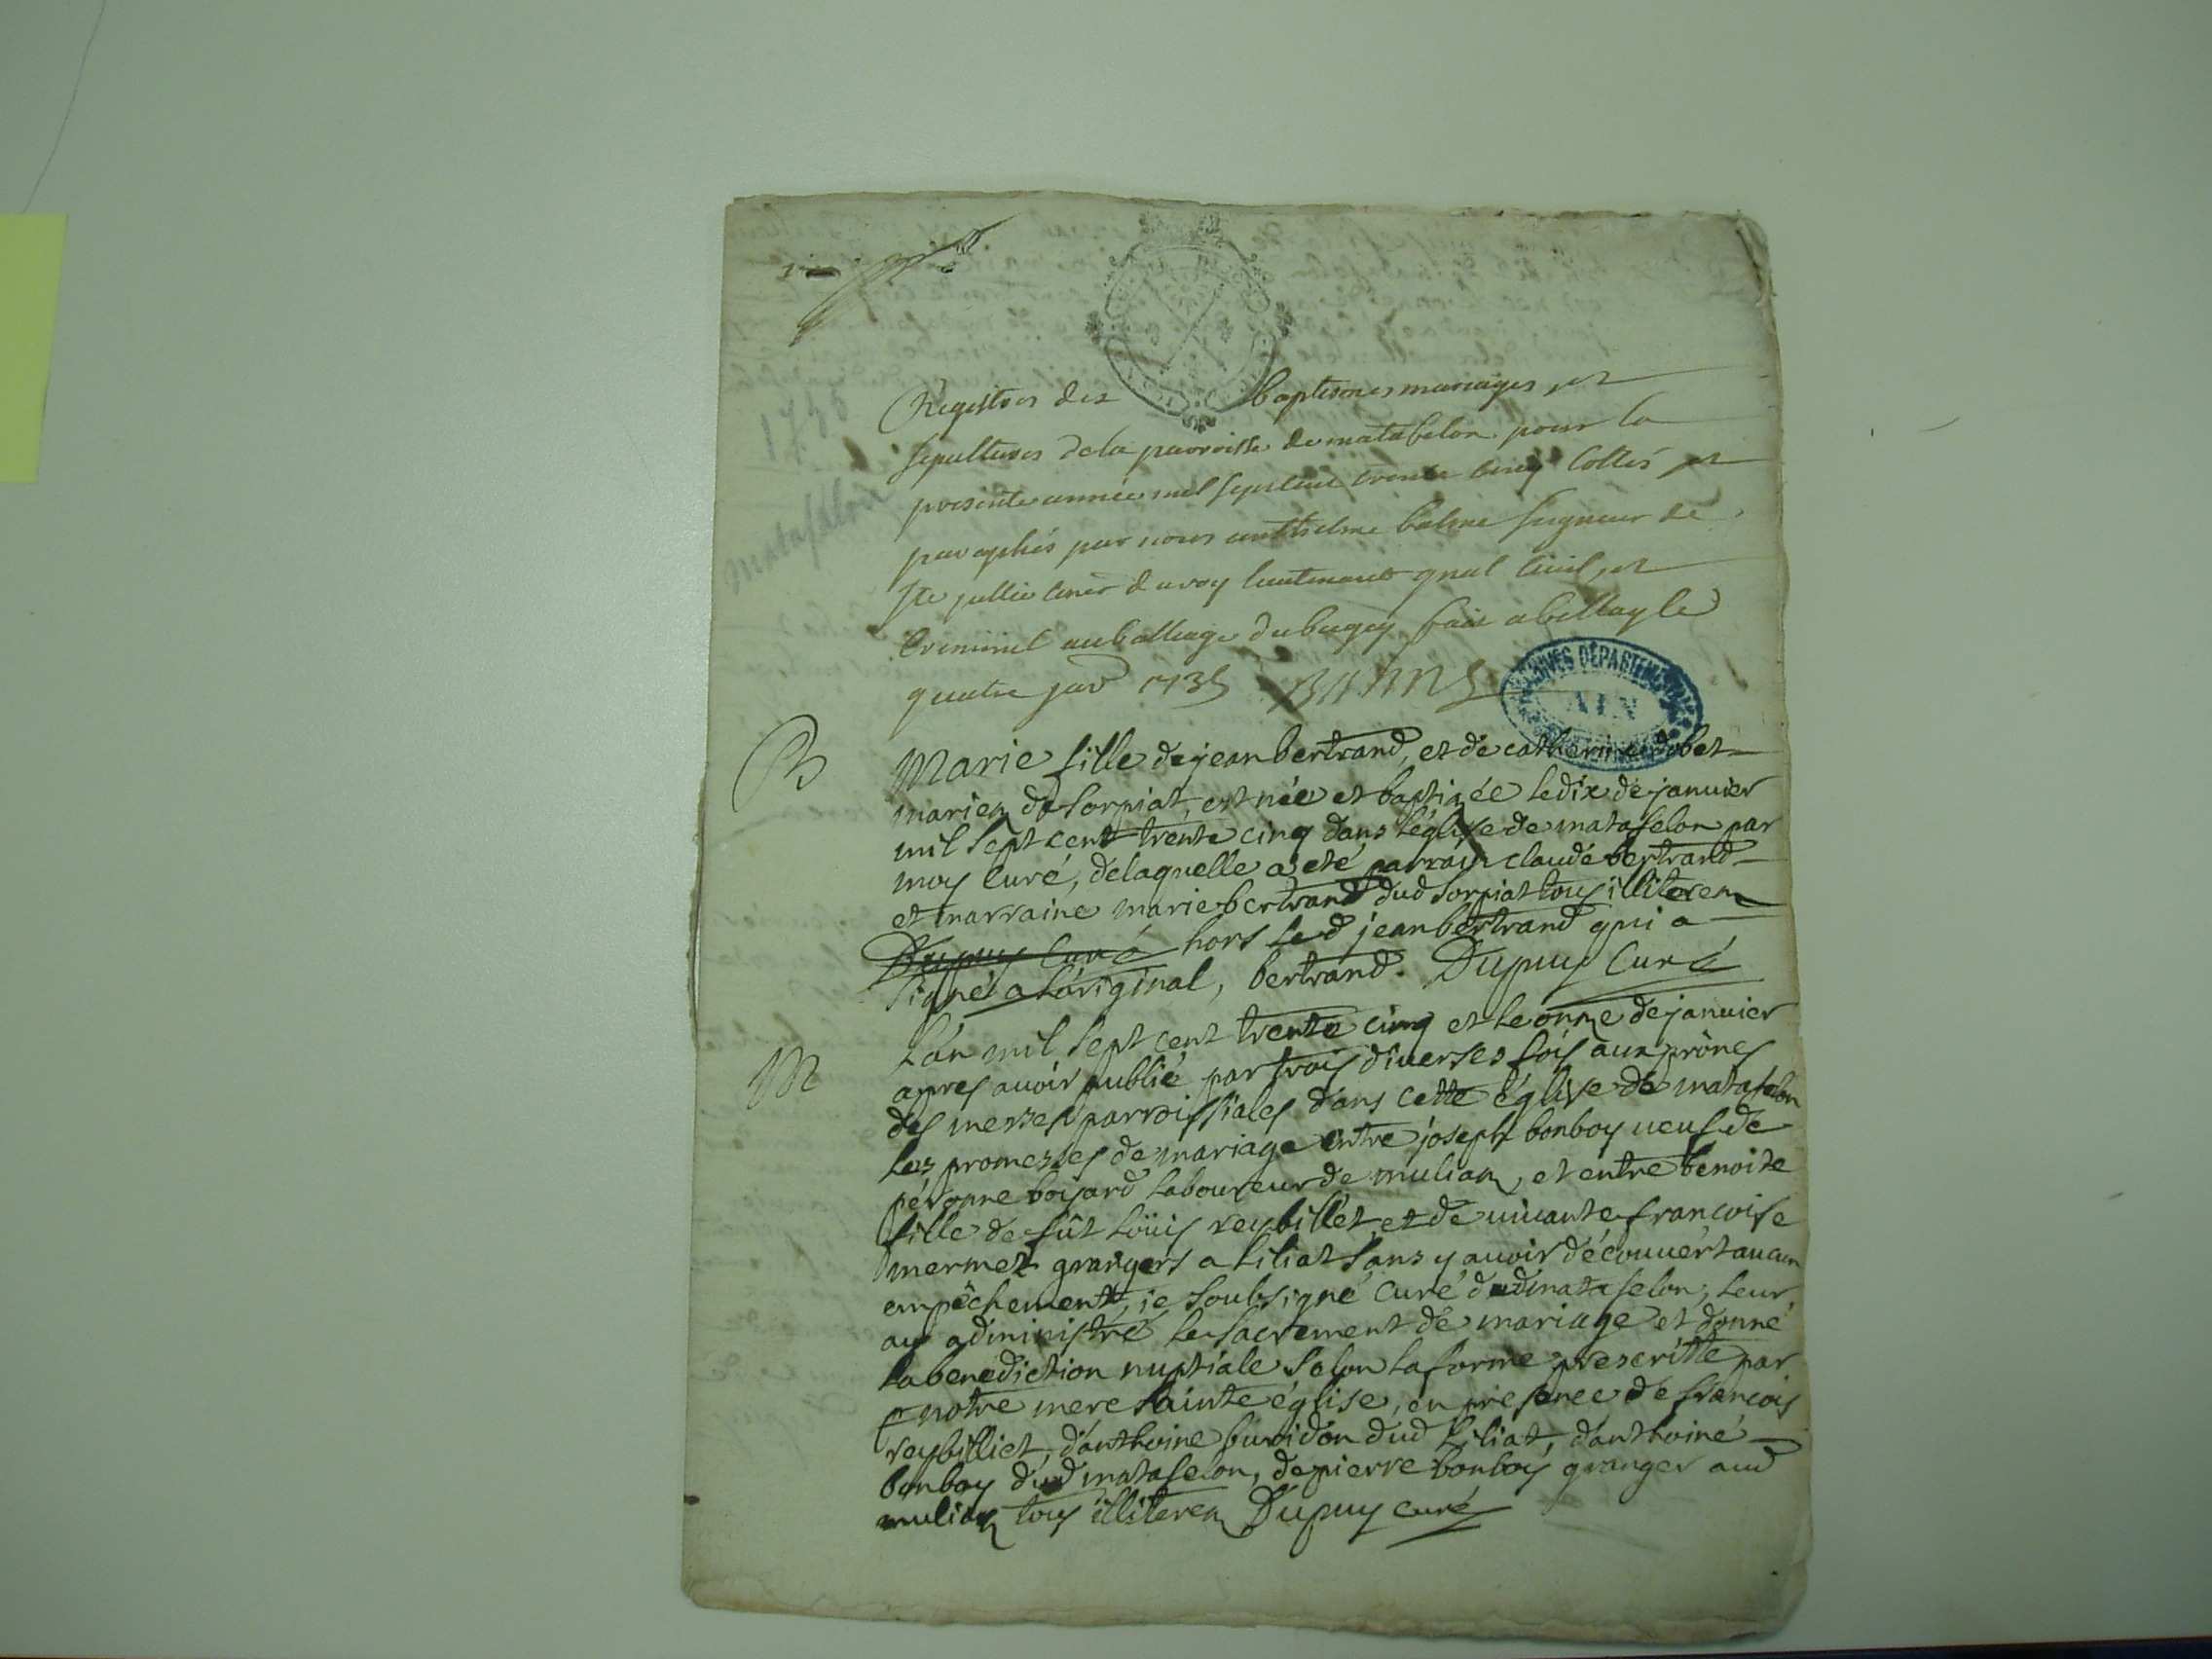 Registres des baptesmes mariages, et
sepultures dela parroisse de matafelon pour la
presente année mil sept cent trente cinq Cottés et
paraphés par nous anthelme balme seigneur de
Ste jullie Coner du roy lieutenant gnal Civil, et
Criminel au balliage du bugey fait a bellay le
quatre janv 1735 BALME
1735
matafelon
ARCHIVES DÉPARTEMENTALES
AIN
B
Marie fille de jean bertrand, et de catherine dobet
mariez de sorpiat, est née et baptizée le dix de janvier
mil sept cent trente cinq dans l'église de matafelon par
moy Curé, delaquelle a eté parrain claude bertrand
et marraine marie bertrand dud sorpiat tous illiterez
Dupuy Curé hors led jean bertrand qui a
signé a l'original, bertrand. Dupuy Curé
M
L'an mil sept cent trente cinq et le onze de janvier
apres avoir publié par trois diverses fois aux prônes
des messes parroissiales dans cette église de matafelon
les promesses de mariage entre joseph bonboy veuf de
péronne boijard laboureur de muliaz, et entre benoite
fille de fût Loüis reybillet, et de vivante francoise
mermet grangers a Liliat sans y avoir découvert aucun
empêchement, je soubsigné Curé dud matafelon, leur
ay administré le sacrement de mariage et donné
la benediction nuptiale selon la forme prescritte par
notre mere sainte église, en presence de françois
reybilliet, d'anthoine buridon dud Liliat, d'anthoine
bonboy dud matafelon, de pierre bonboy granger aud
muliaz tous illiterez Dupuy curé